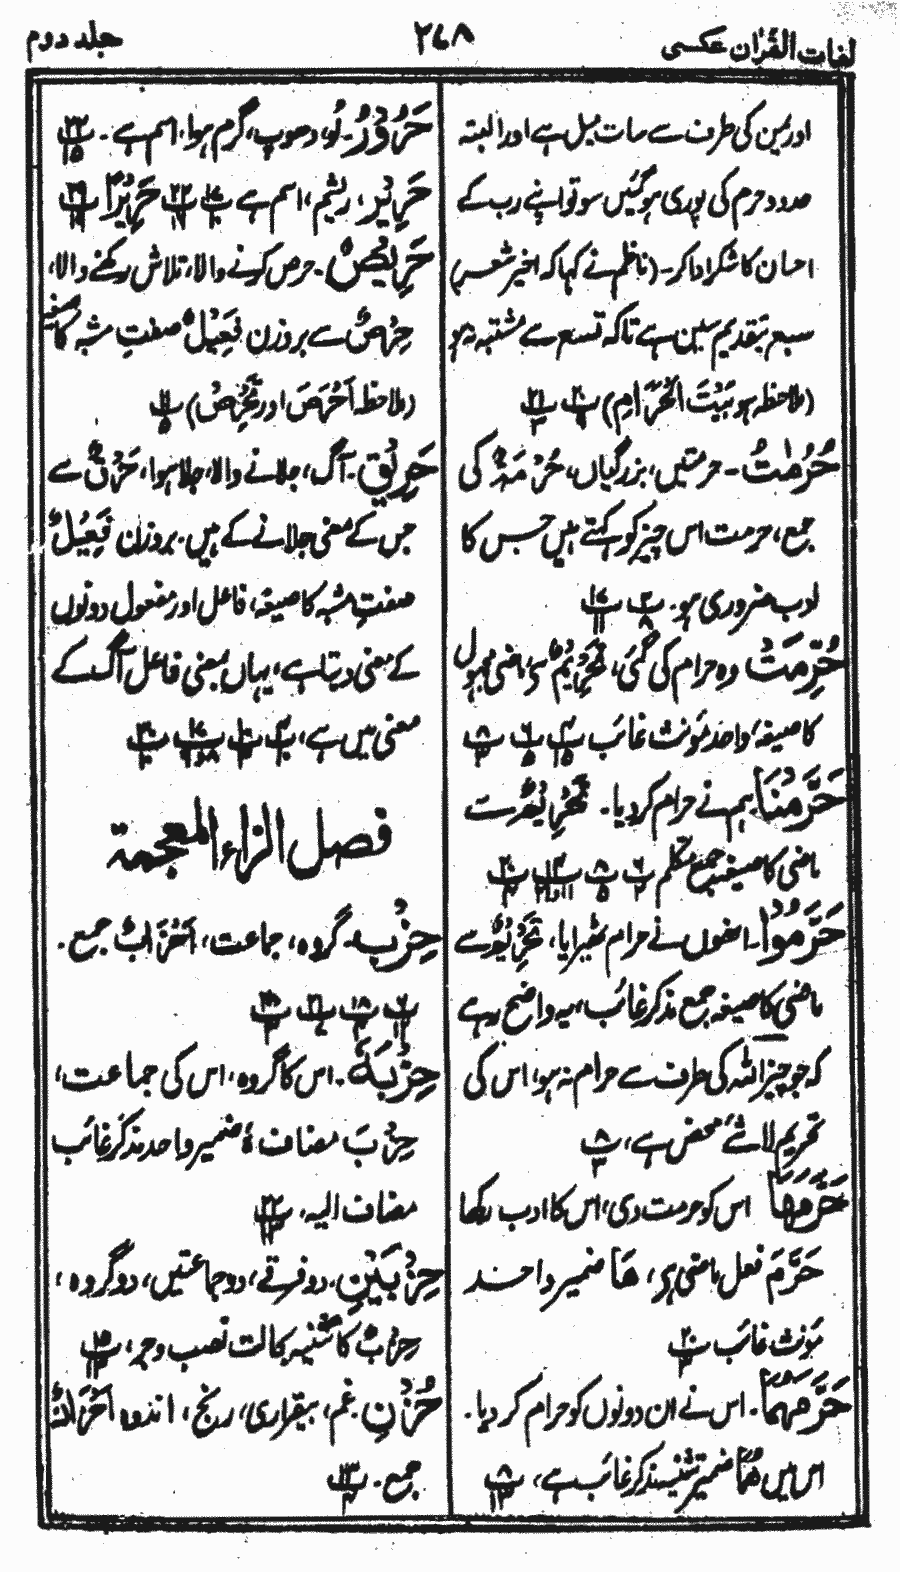 لغات القرآن عکسی
۲۶۸
جلد دوم
اور زمین کی طرف سے سات میل ہے اور البتہ
حدود حرم کی پوری ہوگئیں سو تو اپنے رب کے
احسان کا شکر ادا کر۔ (ناظم نے کہا کہ اخیر شعر)
سبع بتقدیم سین سے ہے تاکہ تسع سے مشتبہ نہ ہو
(ملاحظہ ہو بَیْتَ الْحَرَامِ)
حُرُمٰتُ ۔ حرمتیں، بزرگیاں، حُرْمَۃٌ کی
جمع، حرمت اس چیز کو کہتے ہیں جس کا
ادب ضروری ہو۔
حُرِّمَتْ وہ حرام کی گئی، تَحْرِیْمٌ سے ماضی مجہول
کا صیغہ، واحد مؤنث غائب
حَرَّمْنَا ہم نے حرام کر دیا۔ تَحْرِیْمٌ سے
ماضی کا صیغہ جمع متکلم
حَرَّمُوْا ۔ انھوں نے حرام ٹھیرایا، تَحْرِیْمٌ سے
ماضی کا صیغہ جمع مذکر غائب، یہ واضح رہے
کہ جو چیز اللہ کی طرف سے حرام نہ ہو، اس کی
تحریم لاشئے محض ہے،
حَرَّمَهَا اس کو حرمت دی، اس کا ادب رکھا
حَرَّمَ فعل ماضی ہے، هَا ضمیر واحد
مؤنث غائب
حَرَّمَهُمَا ۔ اس نے ان دونوں کو حرام کر دیا۔
اس میں هُمَا ضمیر تثنیہ مذکر غائب ہے،
حَرُوْرُ ۔ لُو، دھوپ، گرم ہوا، اسم ہے۔
حَرِیْرٌ، ریشم، اسم ہے حَرِیْرًا
حَرِیْصٌ ۔ حرص کرنے والا، تلاش رکھنے والا،
حِرْصٌ سے بروزن فَعِیْلٌ صفت مشبہ کا صیغہ
(ملاحظہ اَحْرَصَ اور تَحْرِصْ)
حَرِیْقِ ۔ آگ، جلانے والا، جلا ہوا، حَرْقٌ سے
جس کے معنی جلانے کے ہیں۔ بروزن فَعِیْلٌ
صفت مشبہ کا صیغہ، فاعل اور مفعول دونوں
کے معنی دیتا ہے، یہاں بمعنی فاعل آگ کے
معنی میں ہے،
فصل الزاء المعجمۃ
حِزْبُ ۔ گروہ، جماعت، اَحْزَابٌ جمع۔
حِزْبَهٗ ۔ اس کا گروہ، اس کی جماعت،
حِزْبَ مضاف ہٗ ضمیر واحد مذکر غائب
مضاف الیہ،
حِزْبَیْنِ ۔ دو فرقے، دو جماعتیں، دو گروہ،
حِزْبٌ کا تثنیہ بحالت نصب و جر،
حُزْنِ ۔ غم، بیقراری، رنج، اندوہ اَحْزَانٌ
جمع۔